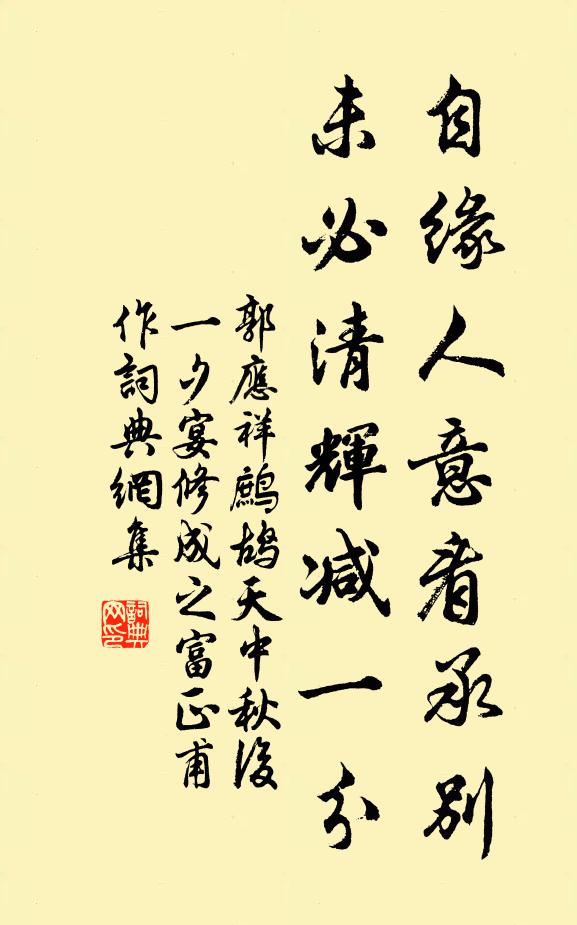 自緣人意看承別
未必清輝減一分
郭應祥鷓鴣天中秋後
一夕宴修成之富正甫
作詞典網集
詞典网印